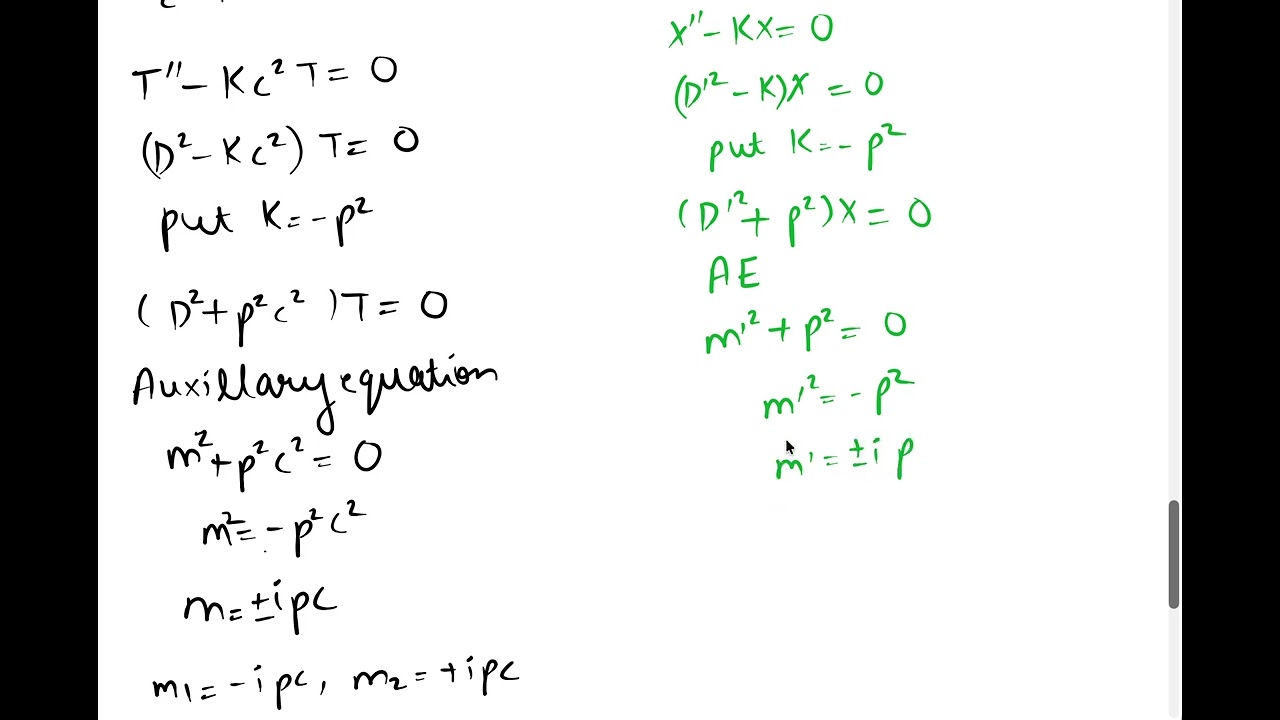 T″ − Kc² T = 0
(D² − Kc²) T = 0
put K = −p²
(D² + p²c²)T = 0
Auxillary equation
m² + p²c² = 0
m² = − p²c²
m = ±ipc
m₁ = −ipc, m₂ = +ipc
X″ − KX = 0
(D′² − K)X = 0
put K = − p²
(D′² + p²)X = 0
AE
m′² + p² = 0
m′² = − p²
m′ = ±i p